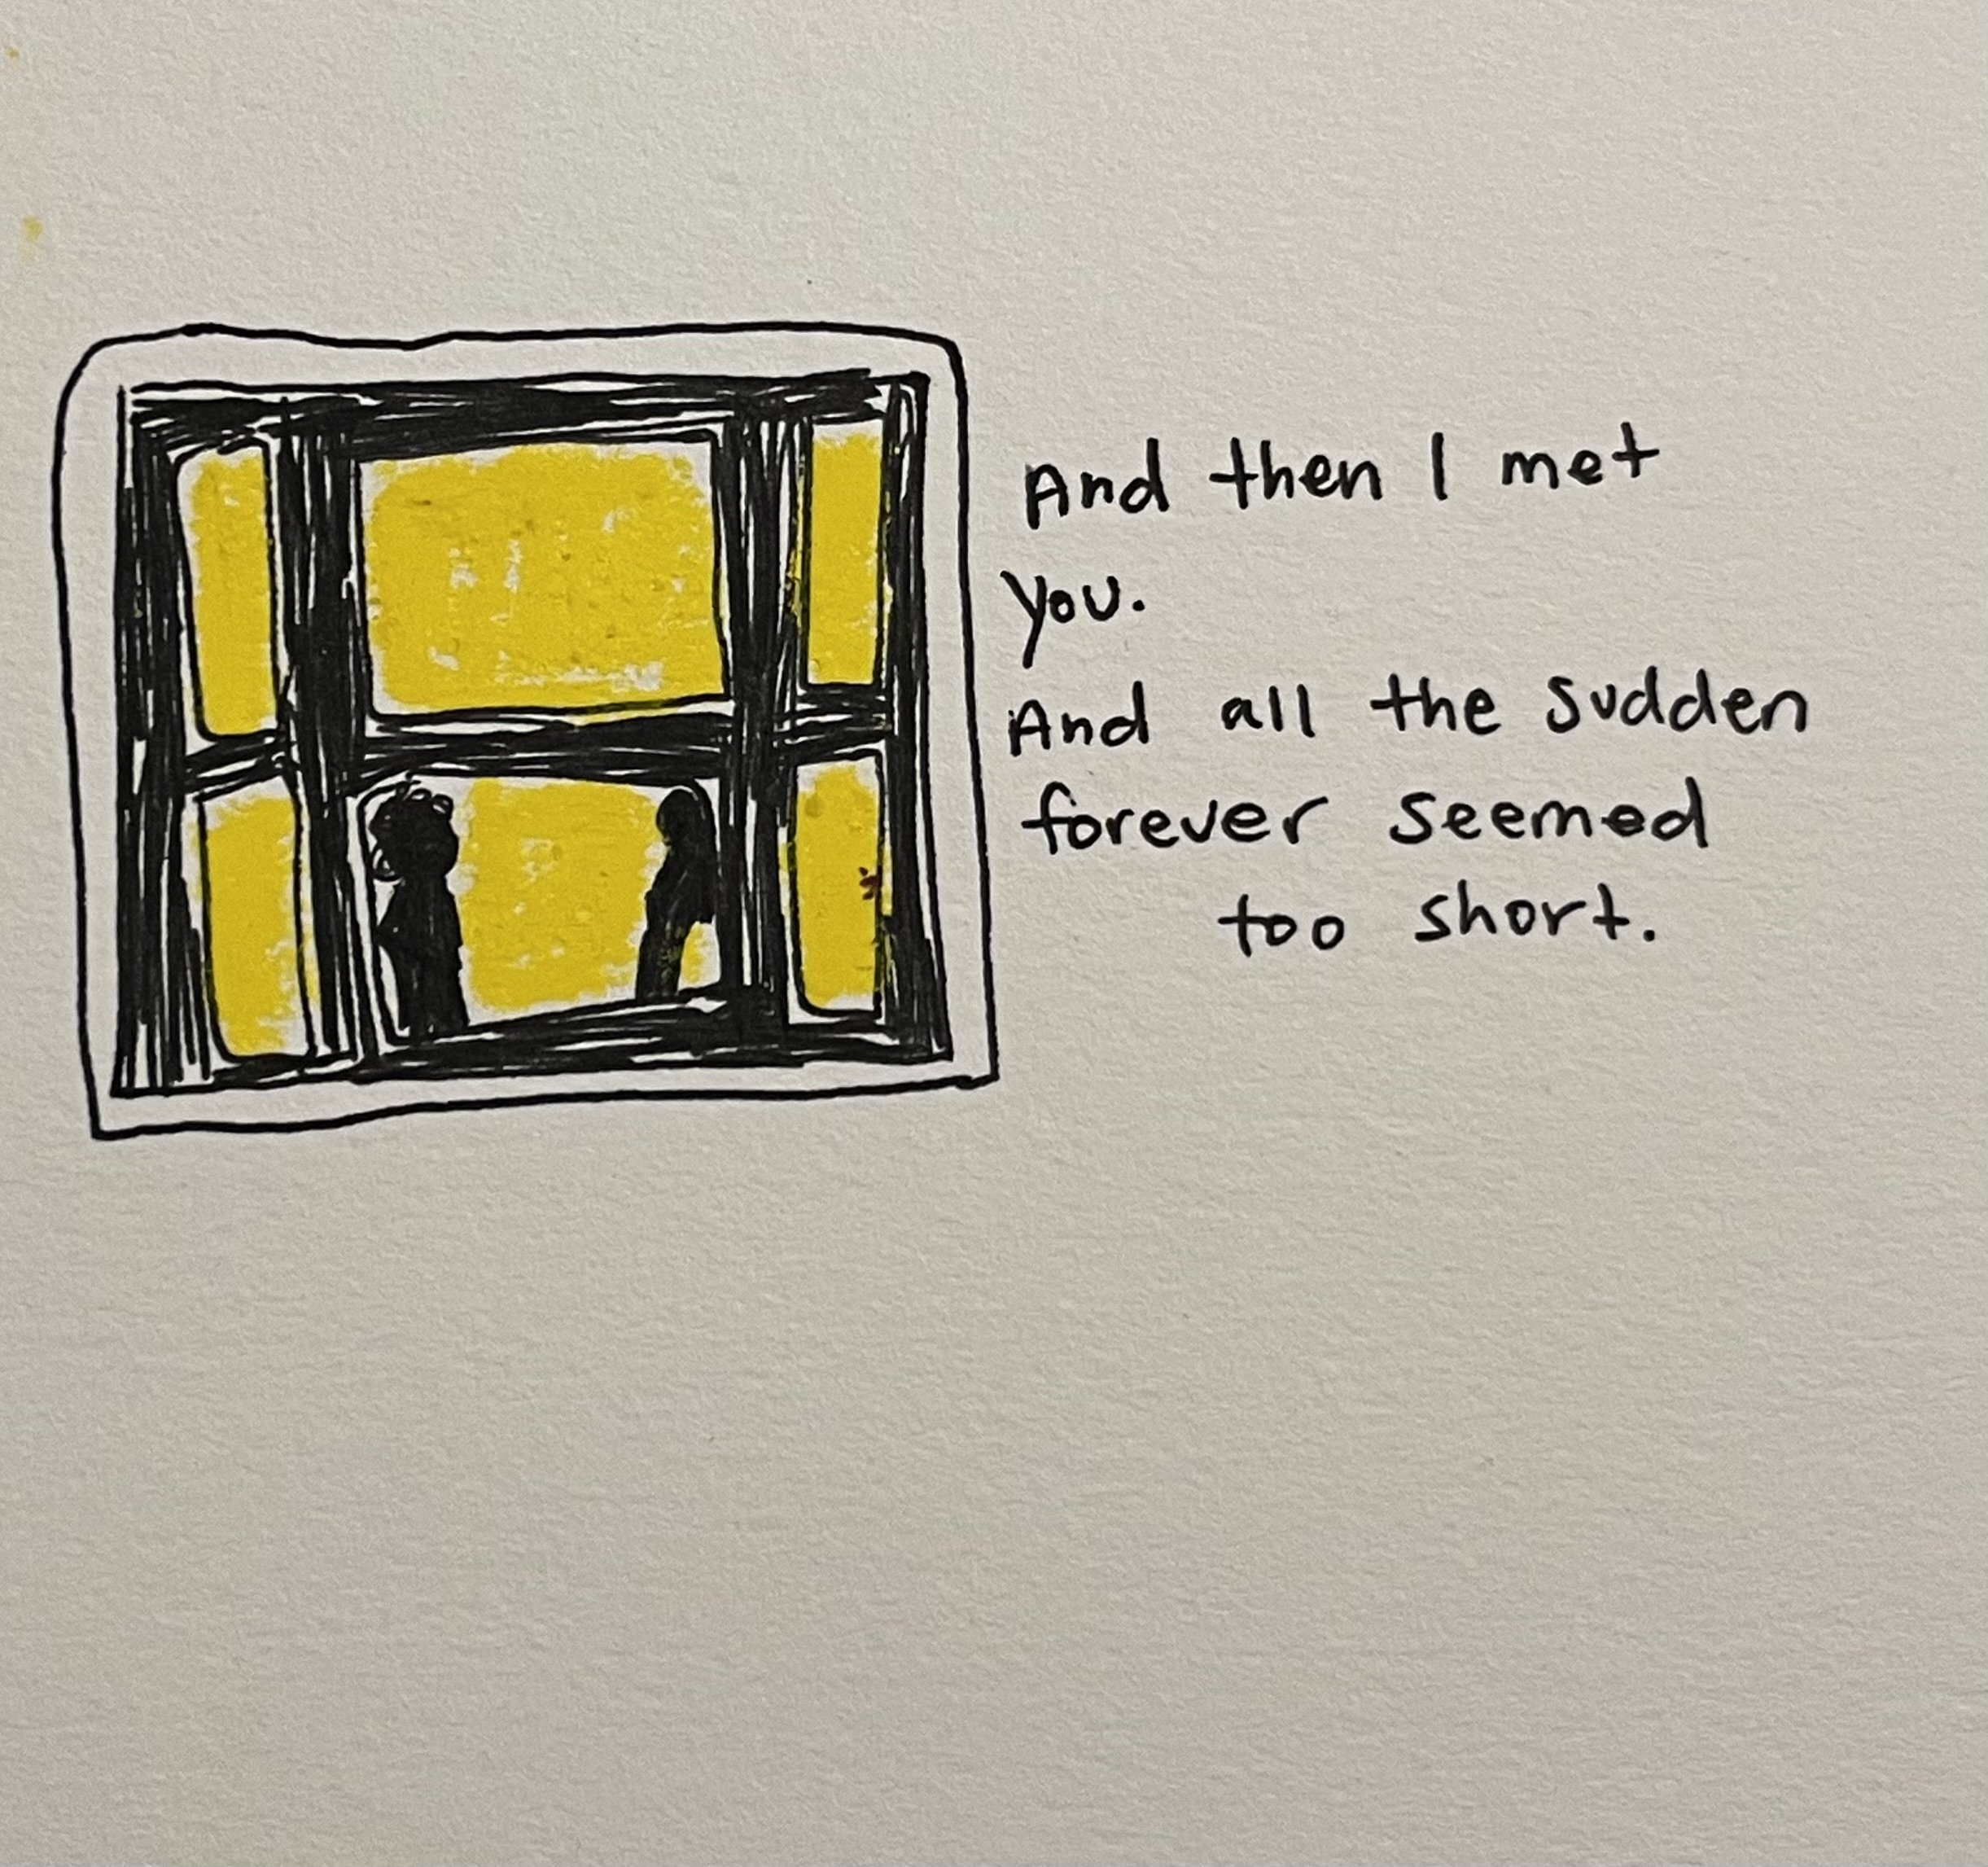 And then I met
you.
And all the sudden
forever seemed
too short.